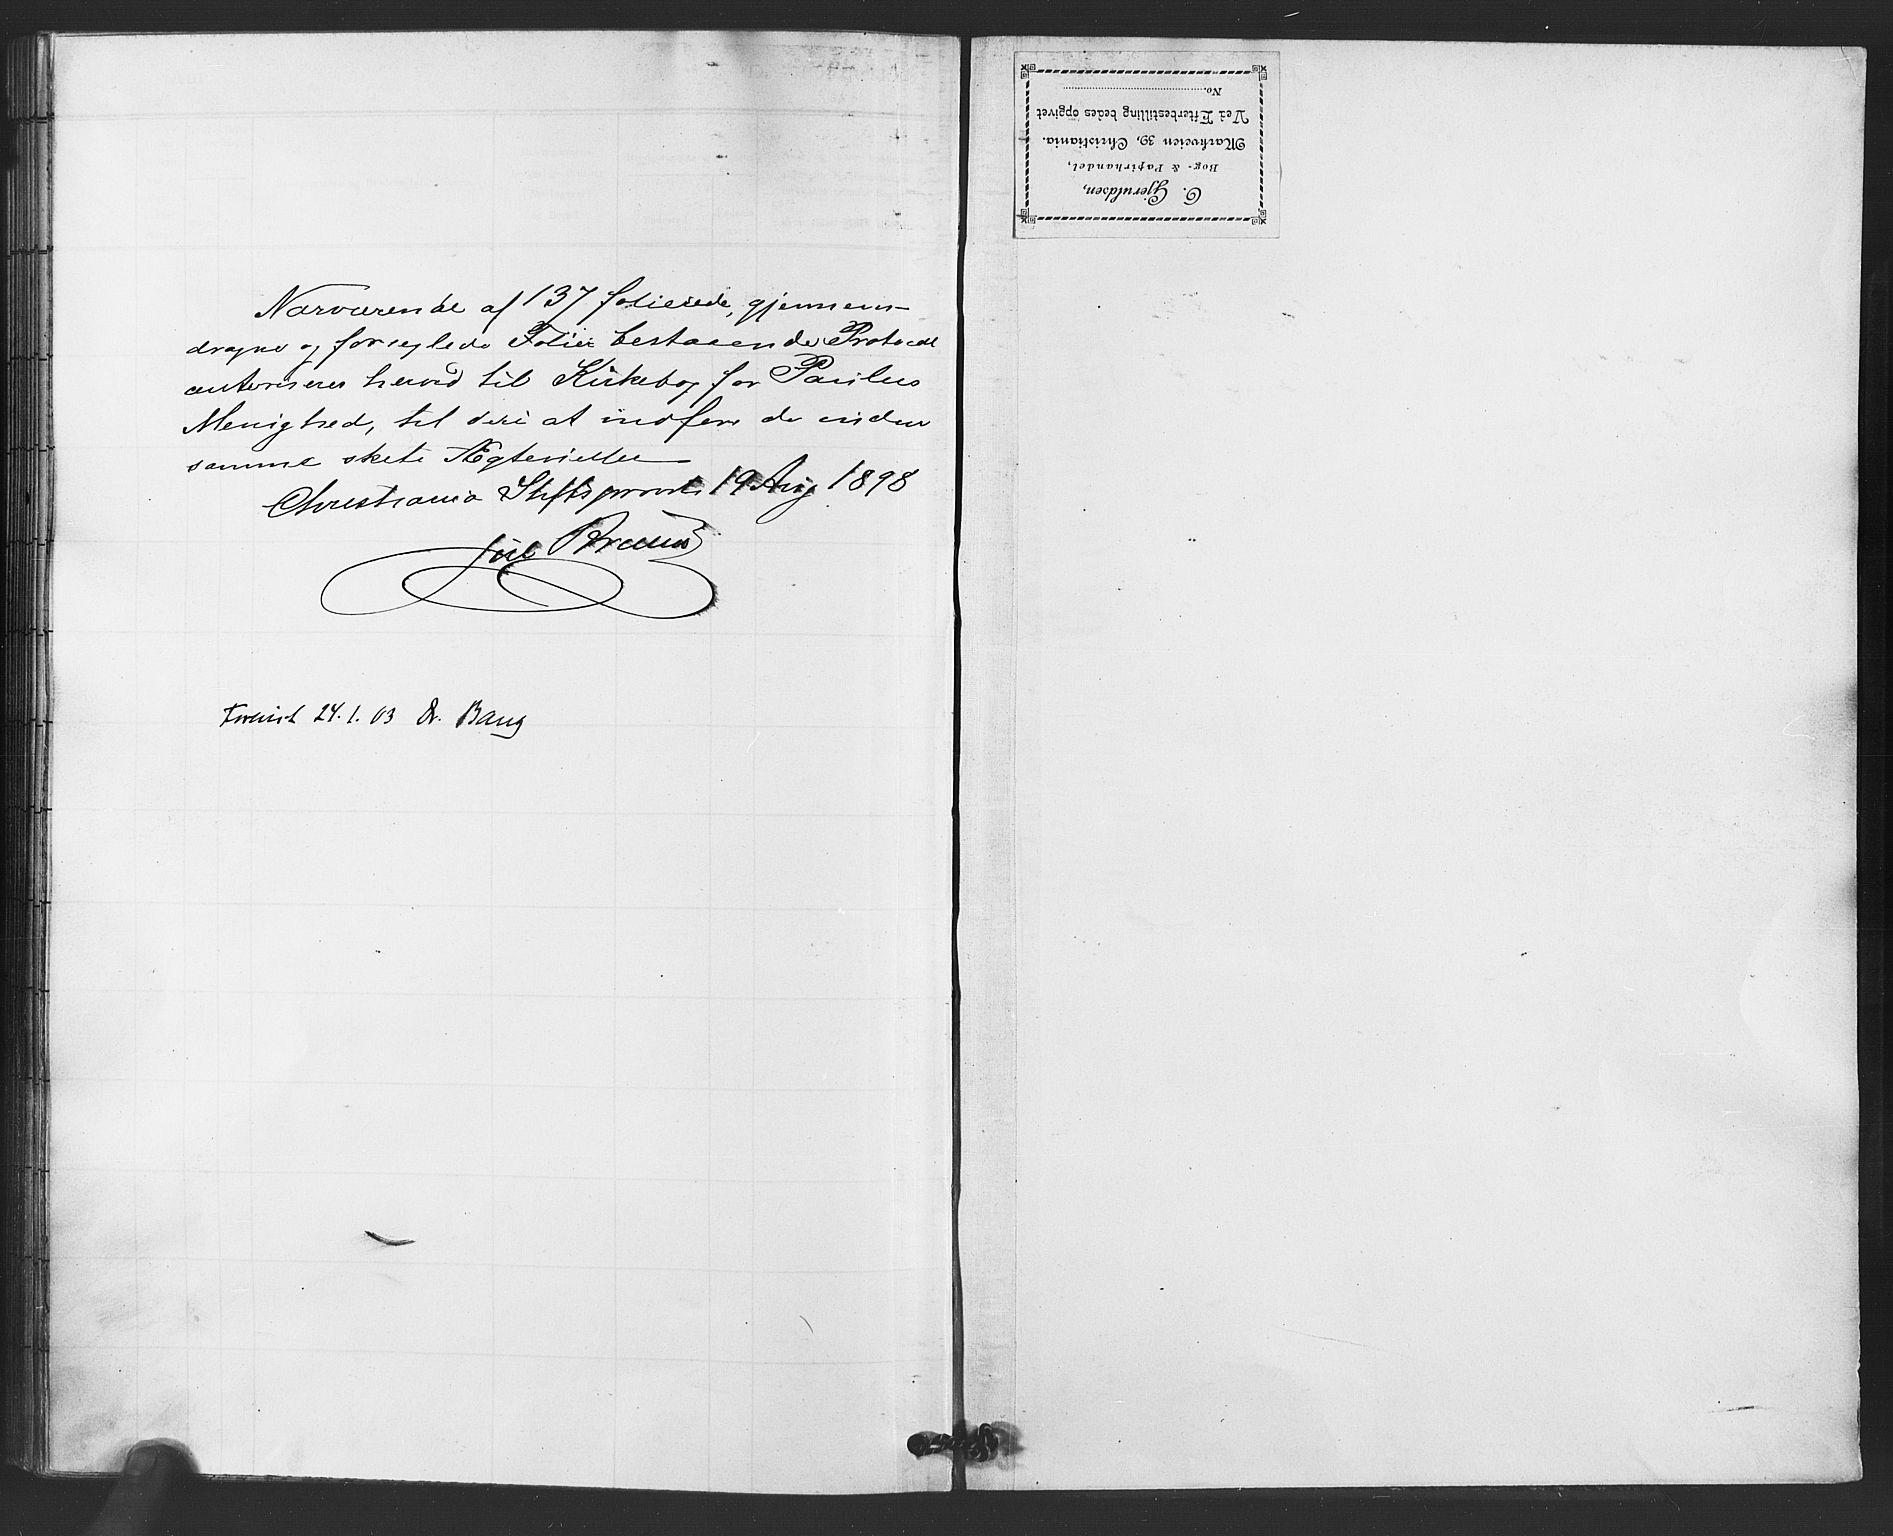 Nærværende af 137 folierede, gjennem-
dragne og forseglede Folier bestaaende Protocol
autoriseres herved til Kirkebog for Paulus
Menighed, til deri at indføre de inden
samme skete Ægtevielser
Christiania Stiftsprovsti 19 Aug 1898
Bruun
24.1.03 Dr. Bang
O. Gjeruldsen,
Bog- & Papirhandel,
Markveien 39, Christiania.
Ved Efterbestilling bedes opgivet
No.